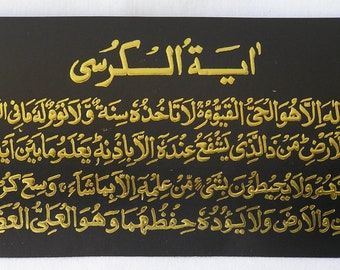 اية الكرسى
له الا هو الحي القيوم لا تاخذه سنة ولا نوم له ما فى ال
الارض من ذا الذى يشفع عنده الا باذنه يعلم ما بين ايد
هم ولا يحيطون بشىء من علمه الا بماشاء وسع كر
ت والارض ولا يؤده حفظهما وهو العلى العظ